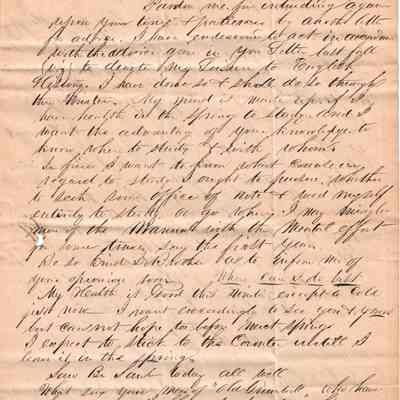 Pardon me for intruding again
upon your time & patience by another letter
for advice. I have endeavored to act in accordance
with the advice gave in your Letter last fall
(viz) to devote my Leisure to English
History. I have done so & shall do so through
the Winter. My mind is made up if I
have health in the Spring to study and I
want the advantage of your knowledge to
know where to study & with whom.
In fine I want to know what course in
regard to study I ought to pursue, whether
to seek some office of note & devote myself
entirely to study or go where I may mingle
some of the Manual with the Mental effort
for some time, say the first year.
Be so kind Brother as to inform me of
your opinion soon. Where can I do best
My Health is Good this Winter except a Cold
just now. I want exceedingly to see you & yours
but can not hope to before next Spring
I expect to stick to the Counter untill I
leave it in the Spring.
Saw B. Sand today all well
What say your of "Old Grimbell"